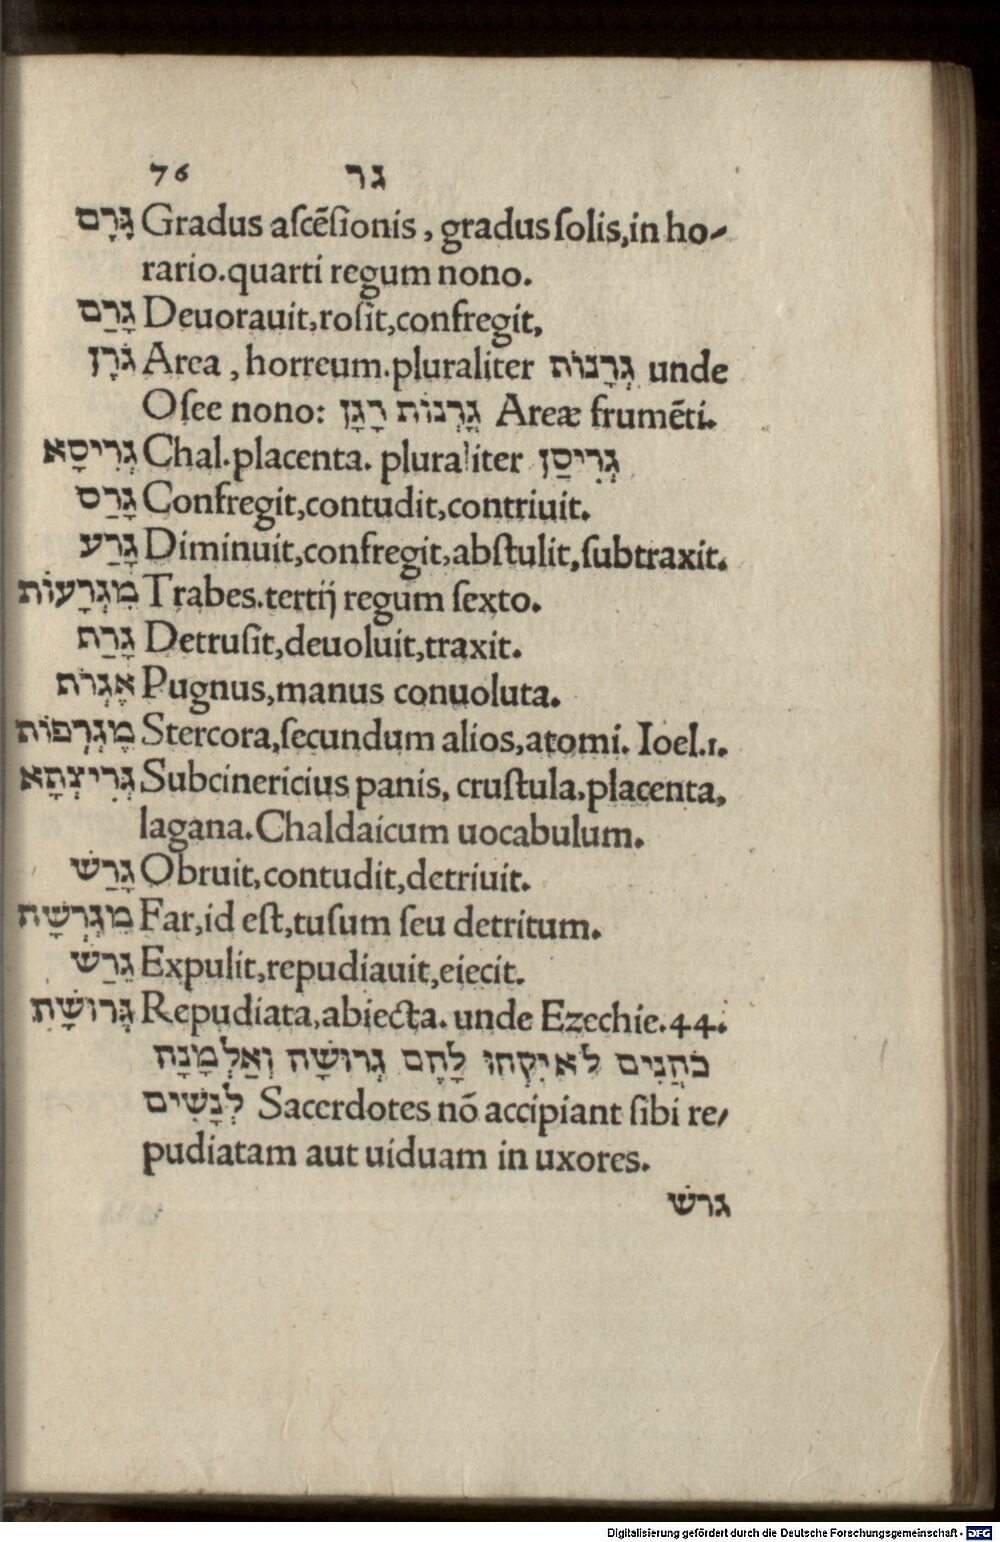 76 גר
גָּרָם Gradus aſcẽſionis, gradus ſolis, in ho-
rario. quarti regum nono.
גָּרַם Deuorauit, roſit, confregit,
גֹּרָן Area, horreum. pluraliter גְּרָנוֹת unde
Oſee nono: גָּרְנוֹת דָּגָן Areæ frumẽti.
גְּרִיסָא Chal. placenta. pluraliter גְּרִיסַן
גָּרַס Confregit, contudit, contriuit.
גָּרַע Diminuit, confregit, abſtulit, ſubtraxit.
מִגְרָעוֹת Trabes. tertij regum ſexto.
גָּרַת Detruſit, deuoluit, traxit.
אֶגְרֹת Pugnus, manus conuoluta.
מֶגְרְפוֹת Stercora, ſecundum alios, atomi. Ioel. 1.
גְּרִיצְתָּא Subcinericius panis, cruſtula. placenta,
lagana. Chaldaicum uocabulum.
גָּרַשׁ Obruit, contudit, detriuit.
מִגְרְשָׁת Far, id eſt, tuſum ſeu detritum.
גֵּרַשׁ Expulit, repudiauit, eiecit.
גְּרוּשָׁת Repudiata, abiecta. unde Ezechie. 44.
כֹּהֲנִים לֹא יִקְחוּ לָהֶם גְּרוּשָׁה וְאַלְמָנָה
לְנָשִׁים Sacerdotes nõ accipiant ſibi re/
pudiatam aut uiduam in uxores.
גרשׁ
Digitalisierung gefördert durch die Deutsche Forschungsgemeinschaft - DFG